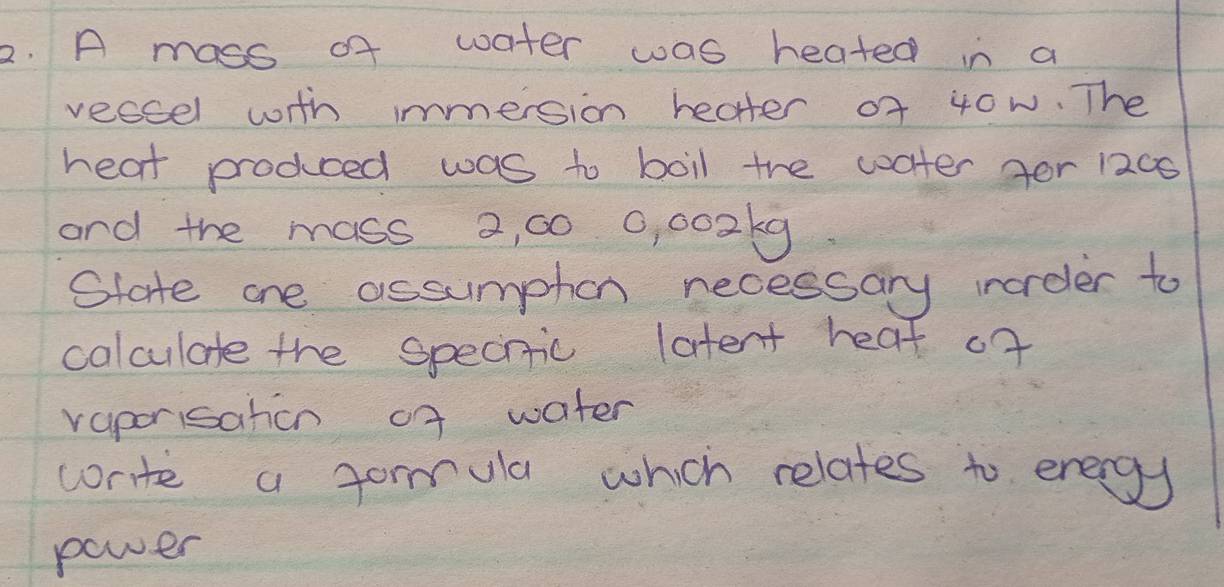 2. A mass of water was heated in a
vessel with immersion heater of 40W. The
heat produced was to boil the water for 120s
and the mass 2,00 0,002kg.
State one assumption necessary inorder to
calculate the specific latent heat of
vaporisation of water
Write a formula which relates to energy
power